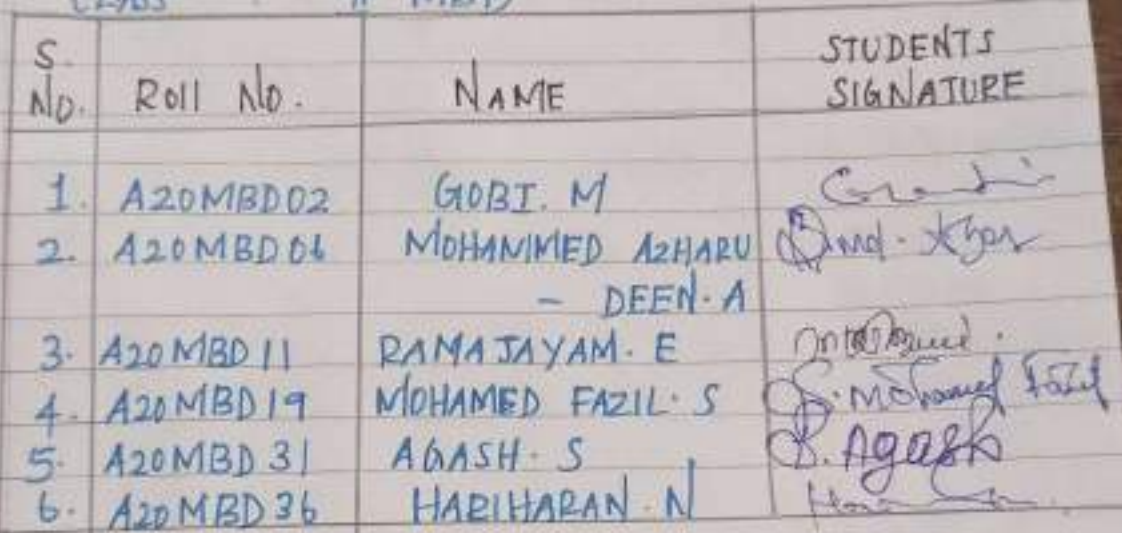 S. No. Roll No. NAME STUDENTS SIGNATURE
1. A20MBD02 GOBI. M
2. A20MBD06 MOHAMMED AZHARU
- DEEN. A
3. A20MBD11 RAMAJAYAM. E
4. A20MBD19 MOHAMED FAZIL. S S. Mohamed Fazil
5. A20MBD31 AGASH. S S. Agash
6. A20MBD36 HARIHARAN. N